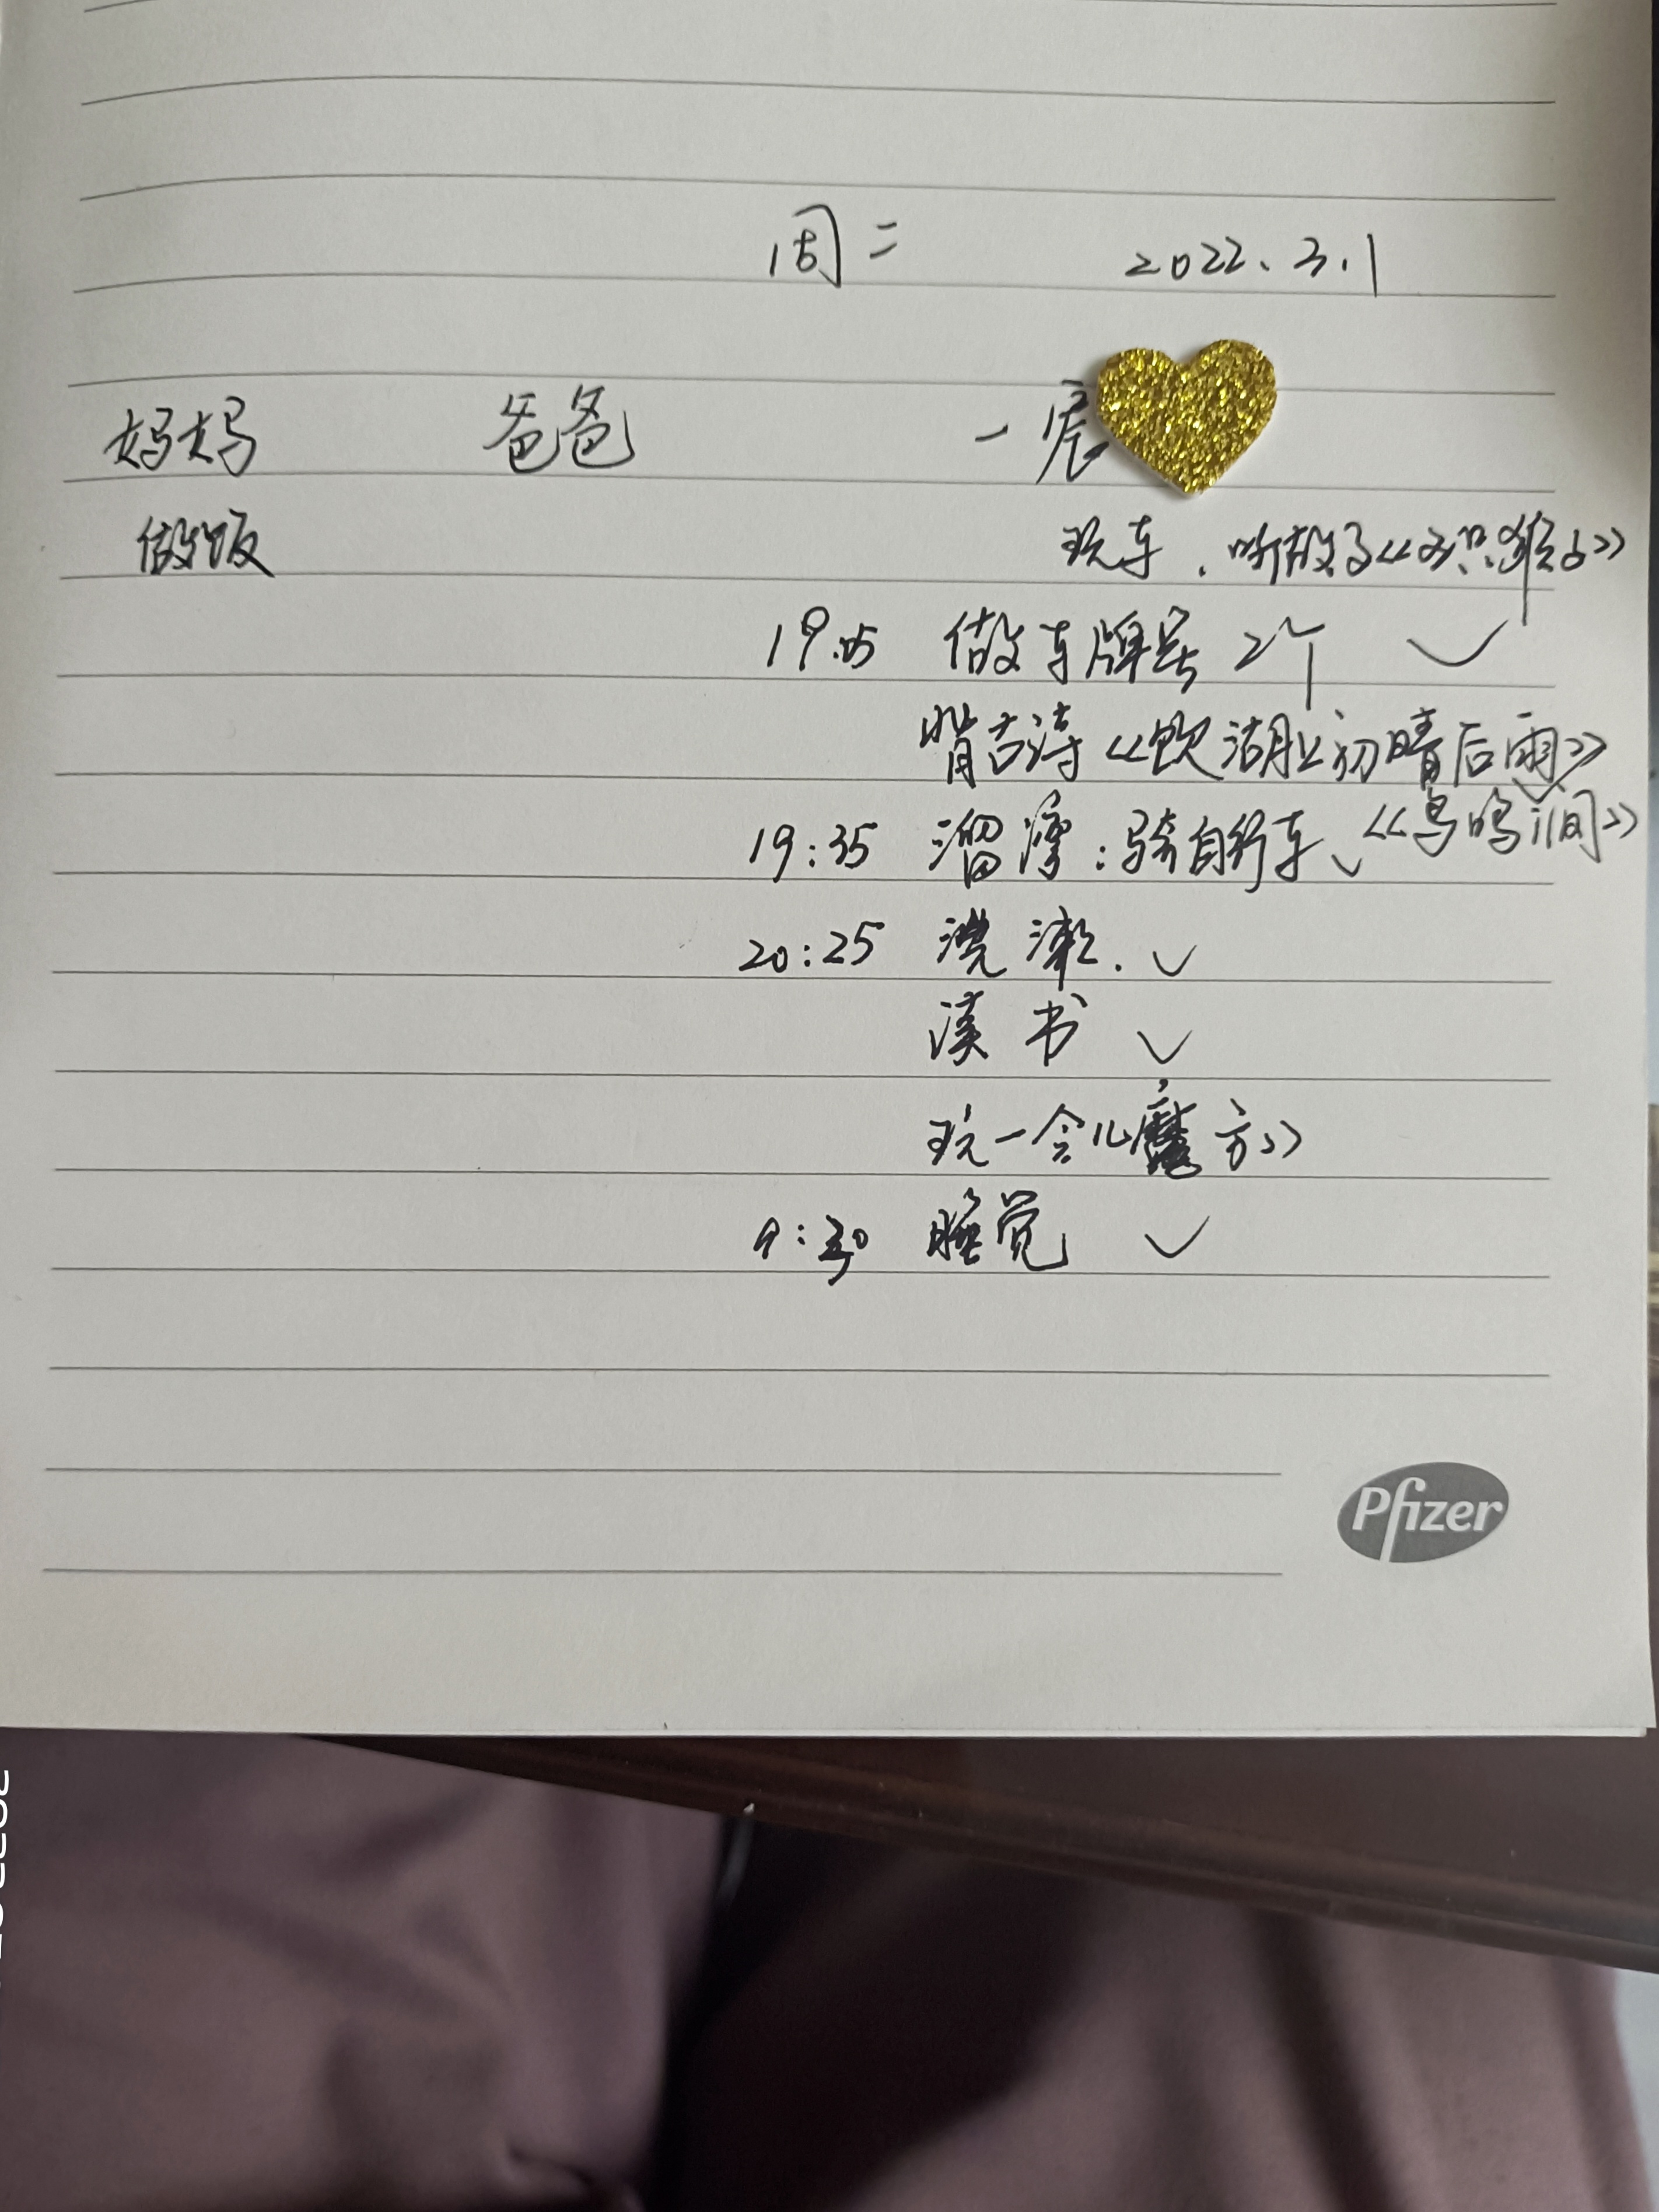 周二 2022.3.1
妈妈 爸爸 一宸
做饭 玩车.听故事《》
19:05 做车牌号 2个 ✓
背古诗《饮湖上初晴后雨》
19:35 溜弯:骑自行车、✓《鸟鸣涧》
20:25 洗漱. ✓
读书 ✓
玩一会儿魔方》
9:30 睡觉 ✓
Pfizer